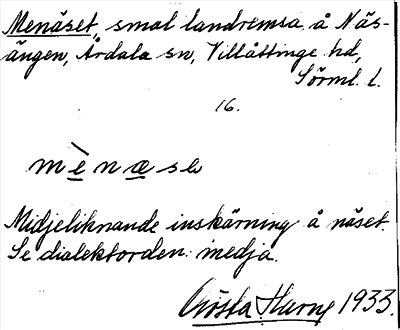 Menäset, smal landremsa å Näs-
ängen, Årdala sn, Villåttinge hd,
Sörml. l.
16.
mènæsə
Midjeliknande inskärning å näset.
Se dialektorden: medja.
Gösta Harne 1933.